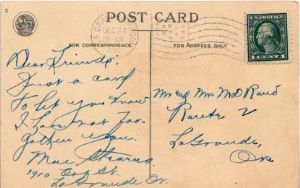 POST CARD
FOR CORRESPONDENCE
FOR ADDRESS ONLY
DEC 24
Dear Friends:
Just a card
to let you know
I have not for-
gotten you.
Mae Stearns
1910
St.
LaGrande Or.
Mr and Mrs
Route 2
LaGrande,
Ore
1 CENT 1